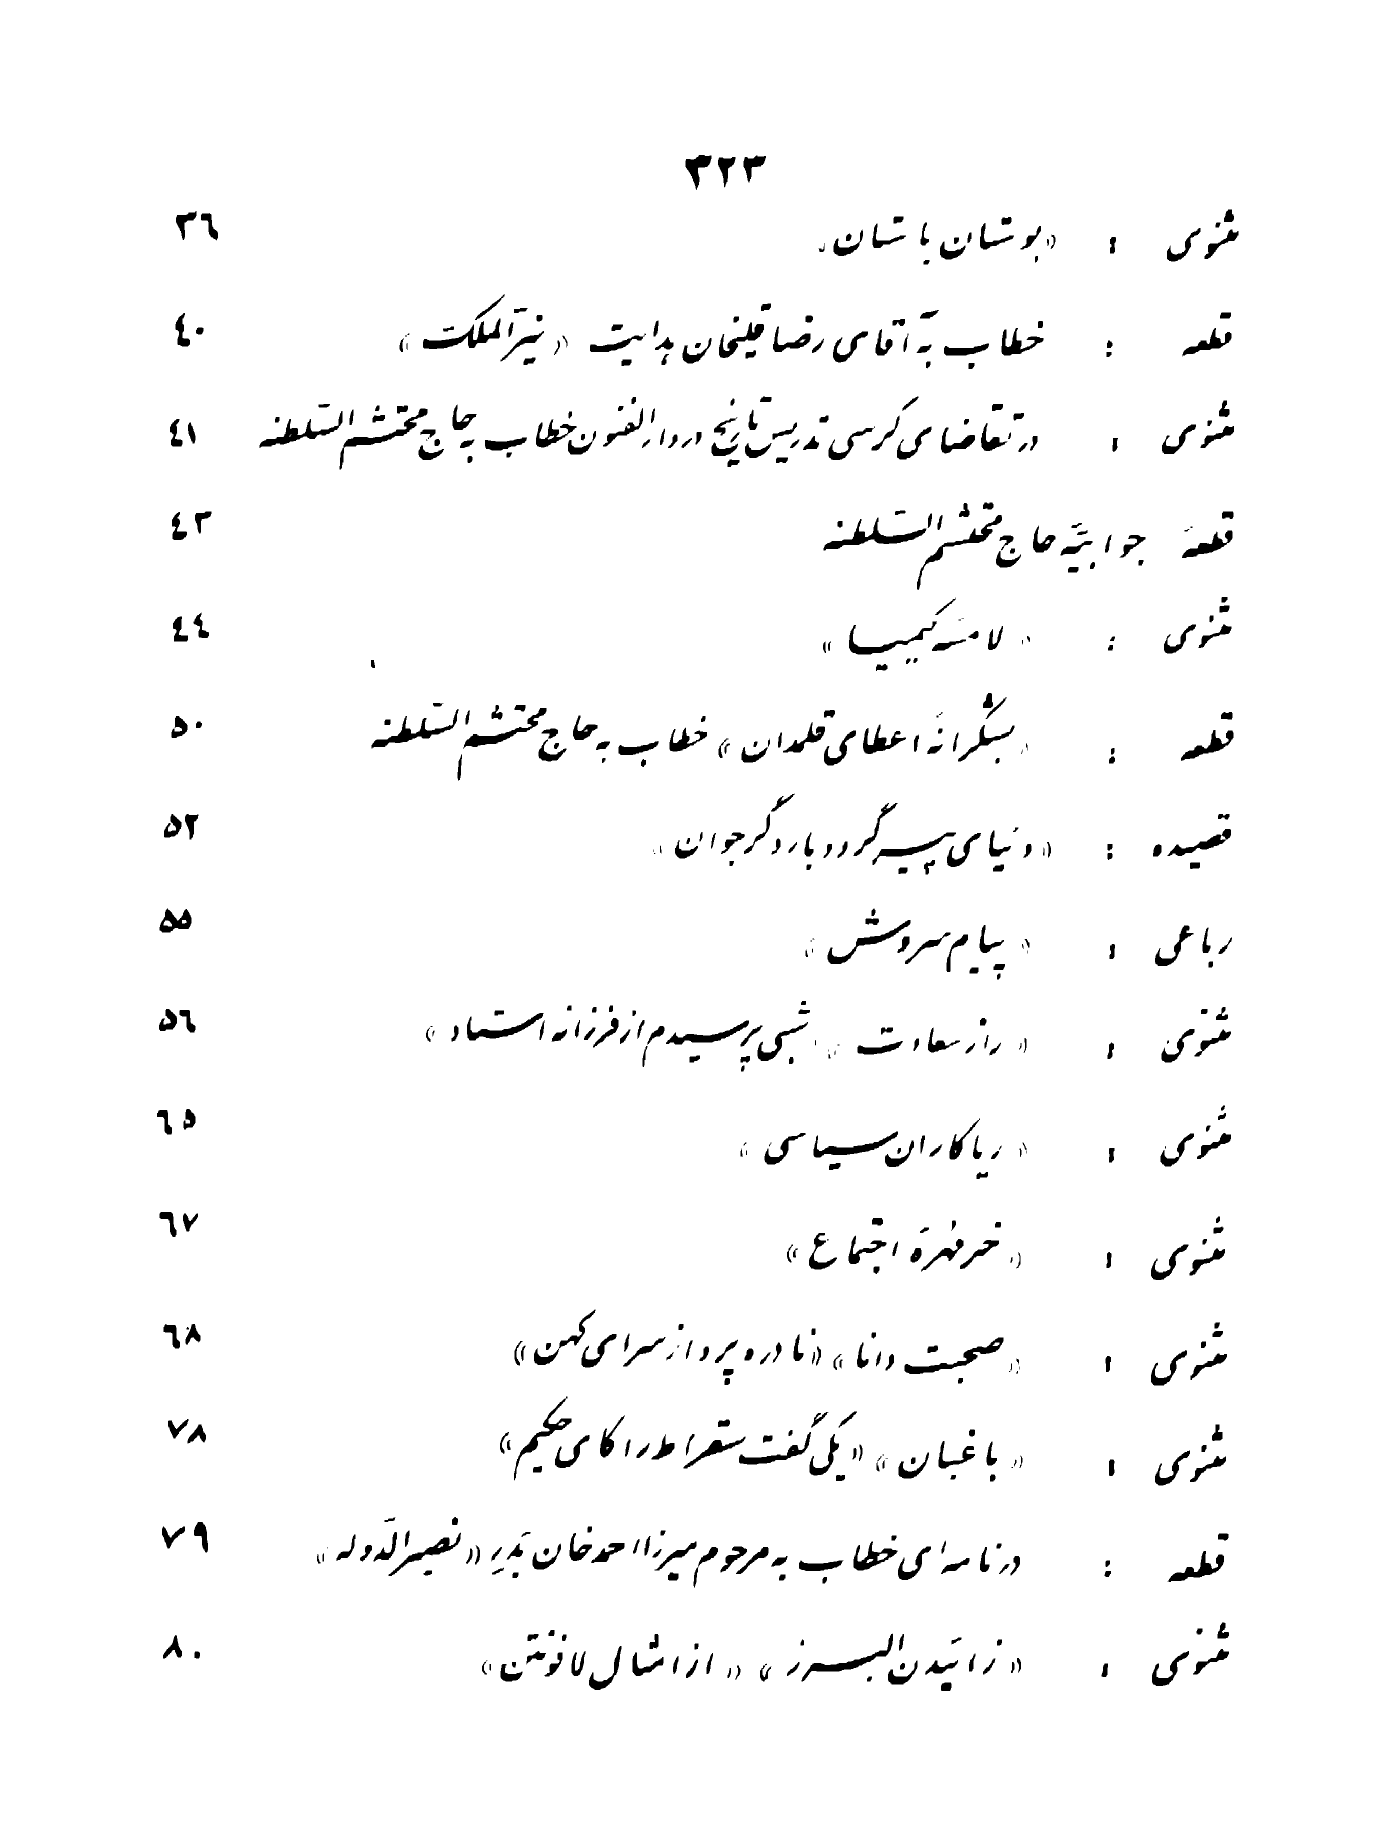 ۳۲۳
مثنوی : «بوستان باستان» ۳۶
قطعه : خطاب به آقای رضا قلیخان هدایت «نیّرالملک» ۴۰
مثنوی : در تقاضای کرسی تدریس تاریخ در دارالفنون خطاب به حاج محتشم السّلطنه ۴۱
قطعهٔ جوابیّه حاج محتشم السّلطنه ۴۳
مثنوی : «لامسهٔ کیمیا» ۴۴
قطعه : «بشکرانهٔ اعطای قلمدان» خطاب به حاج محتشم السّلطنه ۵۰
قصیده : «دنیای پیر گردد بار دگر جوان» ۵۲
رباعی : «پیام سروش» ۵۵
مثنوی : «راز سعادت» «شبی پرسیدم از فرزانه استاد» ۵۶
مثنوی : «ریاکاران سیاسی» ۶۵
مثنوی : «خرمهرهٔ اجتماع» ۶۷
مثنوی : «صحبت دانا» «نادره پرداز سرای کهن» ۶۸
مثنوی : «باغبان» «یکی گفت سقراط را کای حکیم» ۷۸
قطعه : در نامه‌ای خطاب به مرحوم میرزا احمد خان بَدرِ «نصیرالدّوله» ۷۹
مثنوی : «زائیدن البرز» «از امثال لافونتن» ۸۰